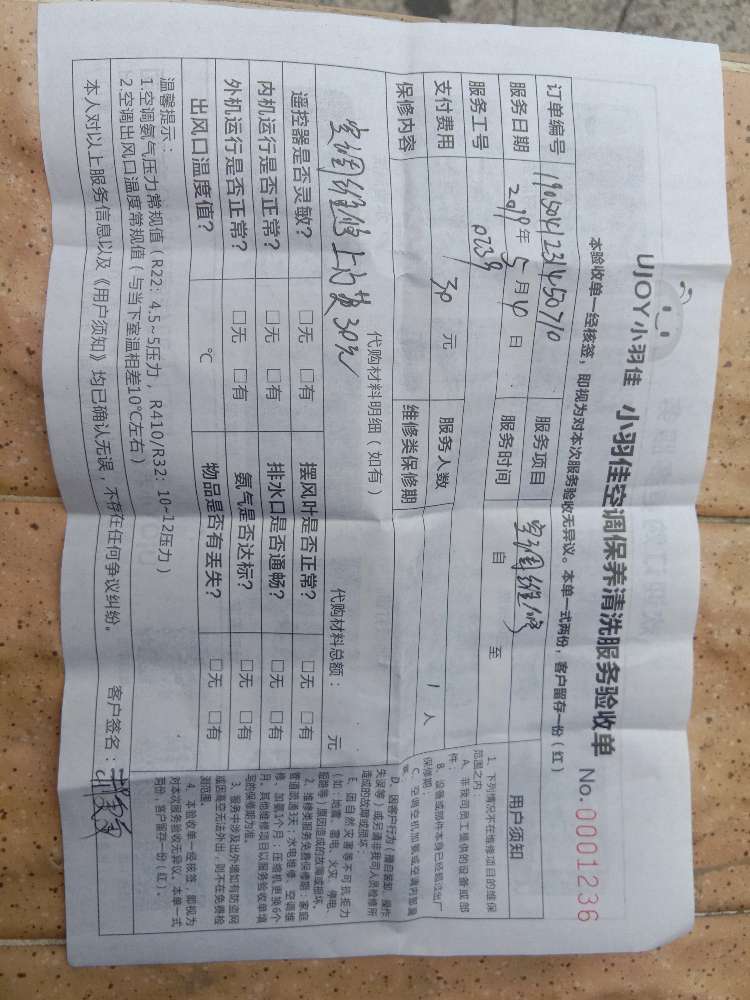 UJOY小羽佳 小羽佳空调保养清洗服务验收单 No.0001236
本验收单一经核签，即视为对本次服务验收无异议。本单一式两份，客户留存一份（红）
订单编号 190504123145070 服务项目 空调维修
服务日期 2019年5月4日 服务时间 自 至
服务工号 0239
支付费用 30元 服务人数 1人
保修内容 维修类保修期
代购材料明细（如有） 代购材料总额： 元
空调维修上门费30元
遥控器是否灵敏？ □无 □有 摆风叶是否正常？ □无 □有
内机运行是否正常？ □无 □有 排水口是否通畅？ □无 □有
外机运行是否正常？ □无 □有 氨气是否达标？ □无 □有
出风口温度值？ ℃ 物品是否有丢失？ □无 □有
温馨提示：
1.空调氨气压力常规值（R22：4.5~5压力，R410/R32：10~12压力）
2.空调出风口温度常规值（与当下室温相差10℃左右）
本人对以上服务信息以及《用户须知》均已确认无误，不存在任何争议纠纷。 客户签名：
用户须知
1、下列情况不在维修项目的维保
范围之内：
A、非我司员工提供的设备或部
件；
B、设备或部件本身已经超过出厂
保修期；
C、空调空机加氨或空调内加氨
D、因客户行为（擅自装卸、操作
失误等）或另请非我司人员检修所
造成的故障或损坏；
E、因自然灾害等不可抗拒力
（如：地震、雷电、火灾、停电、
2、维修类服务免费保修期：家庭
管道疏通3天；水电维修、空调维
修、加氨1个月；压缩机更换6个
月，其他维修项目以服务验收单填
写的保修期为准。
3、服务中涉及出外墙如有防盗网
或因高空无法外出，则不在免费检
测范围。
4、本验收单一经核签，即视为
对本次服务验收无异议。本单一式
两份，客户留存一份（红）。